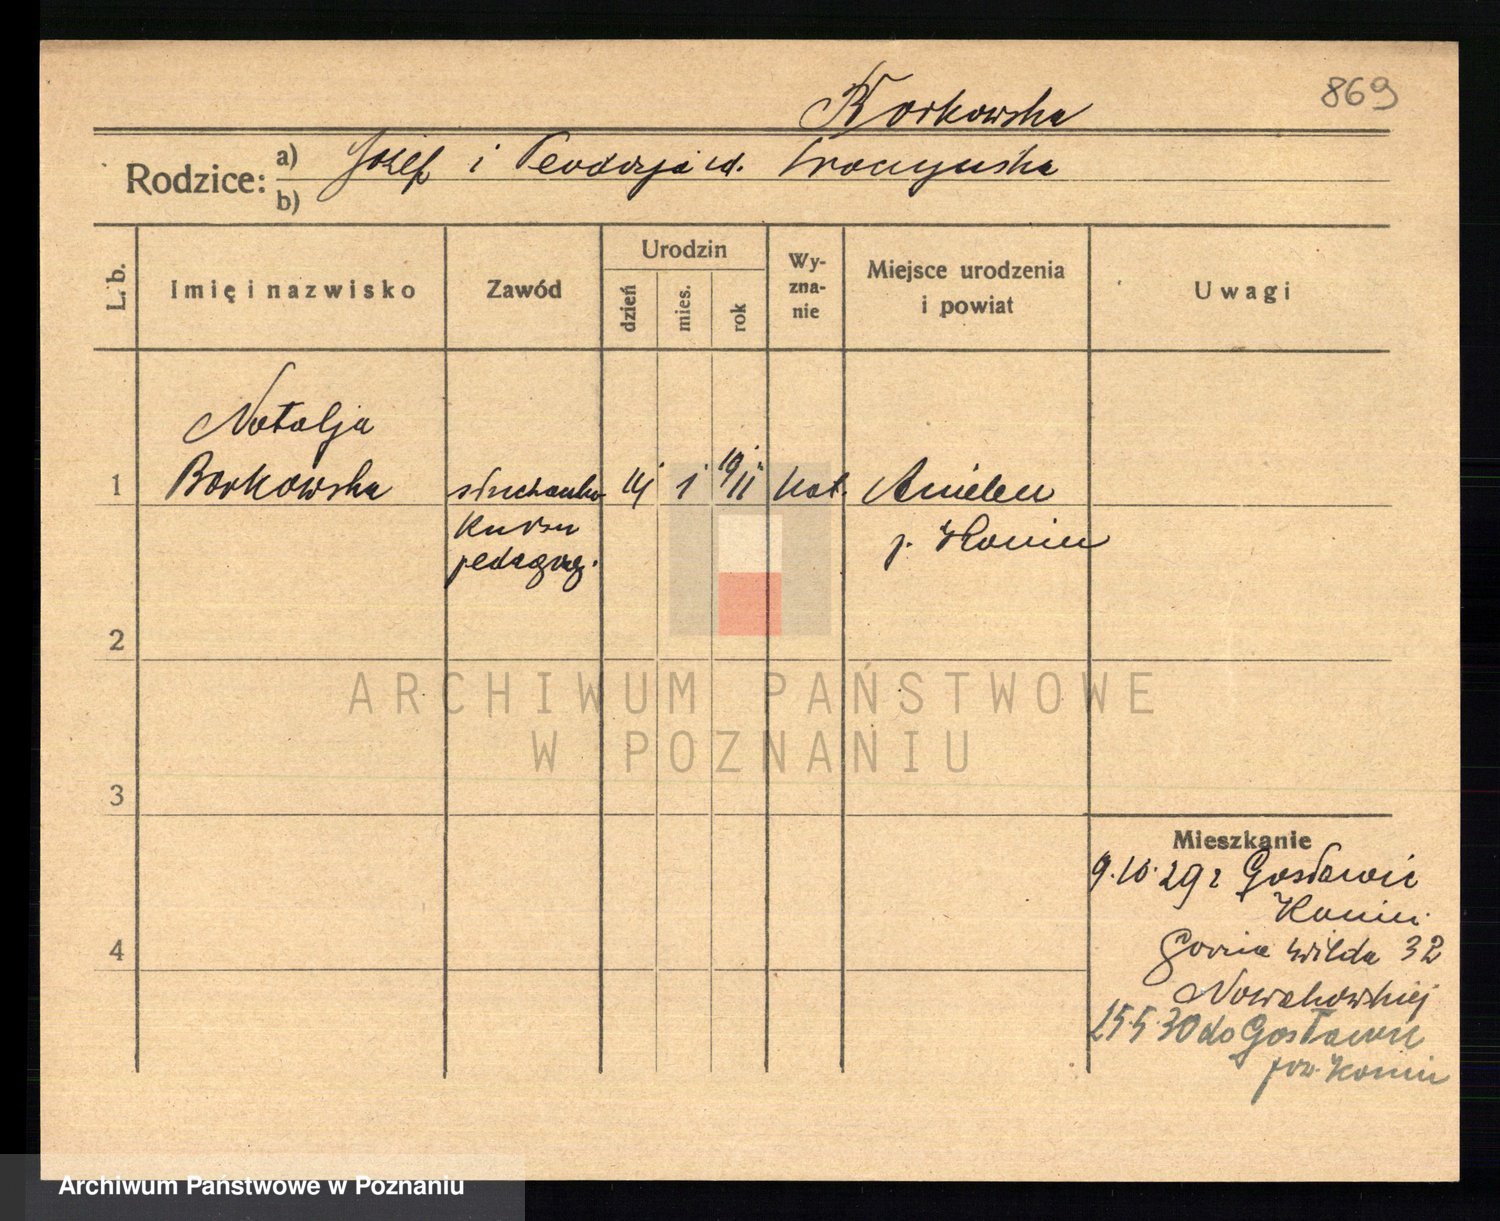 869
Borkowska
Rodzice: a) Józef i Teodozja id.
b)
L. b.
Imię i nazwisko
Zawód
Urodzin
dzień
mies.
rok
Wy-
zna-
nie
Miejsce urodzenia
i powiat
Uwagi
Natalja
1 Borkowska słuchaczka 1 19 11 kat. Anielew
kursu p. Konin
pedagog.
2
ARCHIWUM PAŃSTWOWE
W POZNANIU
3
Mieszkanie
9.10.29 r Gosławic
Konin
4 Górna Wilda 32
Nowakowskiej
15.5.30 do Gosławic
pow. Konin
Archiwum Państwowe w Poznaniu